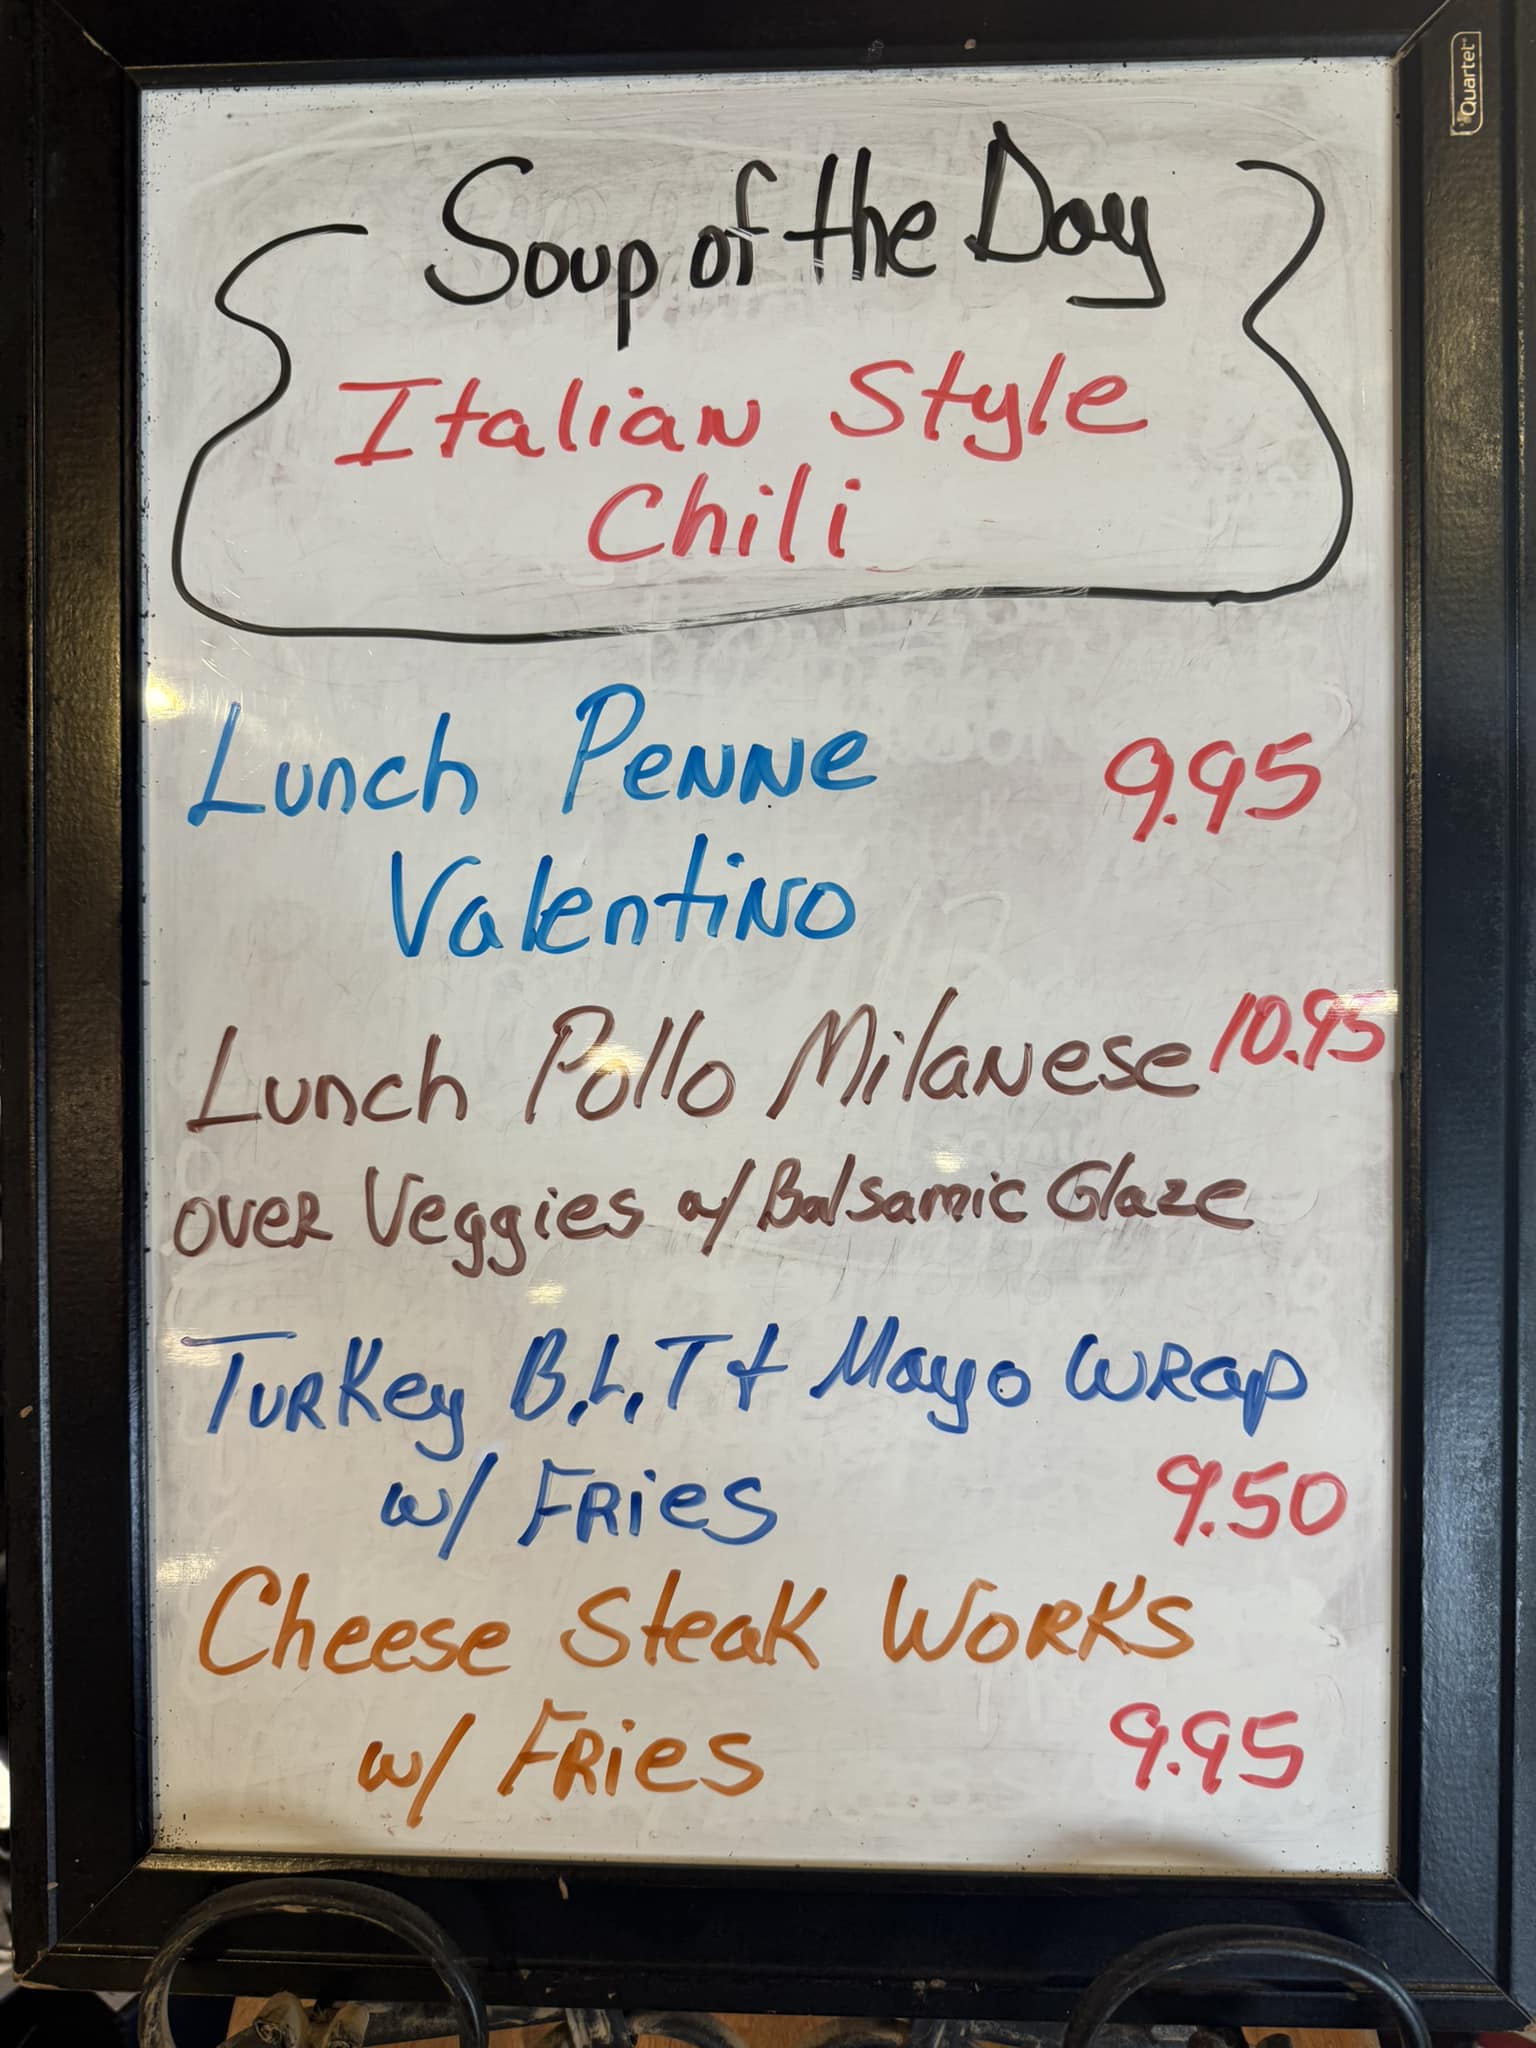 Quartet
Soup of the Day
Italian Style
Chili
Lunch Penne 9.95
Valentino
Lunch Pollo Milanese 10.95
over Veggies w/ Balsamic Glaze
Turkey B.L.T + Mayo Wrap
w/ Fries 9.50
Cheese Steak Works
w/ Fries 9.95